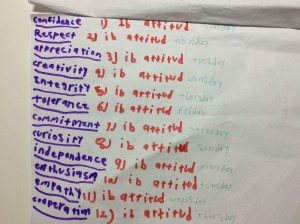 confidence 1) ib attitud Sunday
Respect 2) ib attitud monday
appreciation 3) ib attitud tuesday
creativity 4) ib attitud wensday
Integrity 5) ib attitud thursday
tolerance 6) ib attitud Friday
commitment 7) ib attitud saterday
curiosity 8) ib attitud Sunday
independence 9) ib attitud monday
enthusiasm 10) ib attitud tuesday
empathy 11) ib attitud wensday
cooperation 12) ib attitud thursday